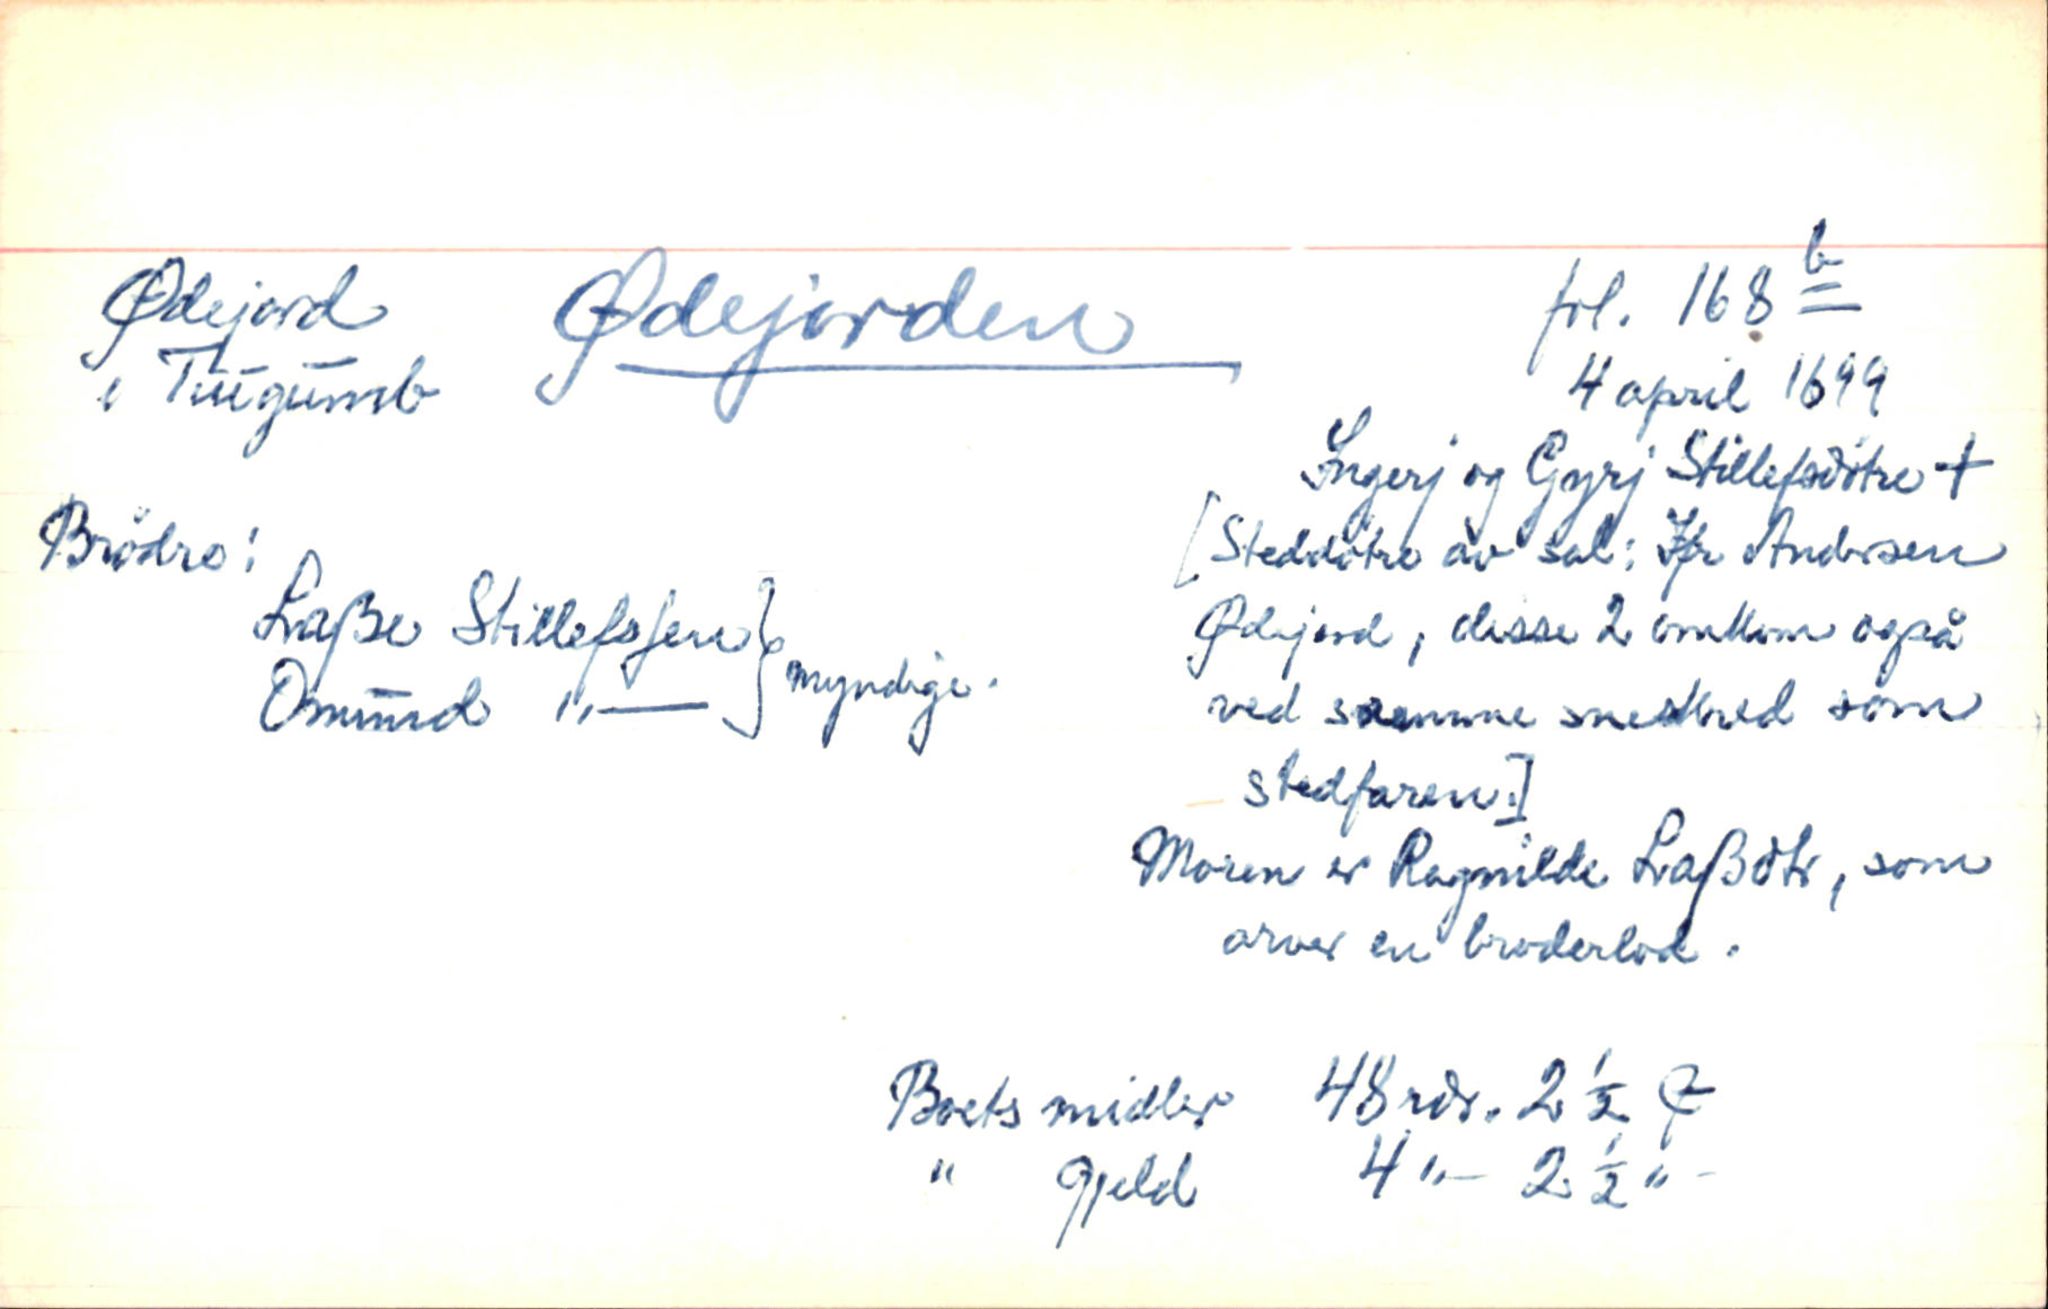 Ødejord
i Tuugumb
Ødejorden
fol. 168 b
4 april 1699
Ingerj og Gyrj Stillefsdötre +
[Steddötre av sal: Andersen
Ødejord, disse 2 omkom også
ved samme sneskred som
stedfaren.]
Moren er Ragnilde Laßdtr, som
arver en broderlod.
Brödre:
Laße Stillefssen } myndige.
Omund "—
Boets midler 48 rdr. 2 ½
" Gjeld 4 "— 2 ½ " -